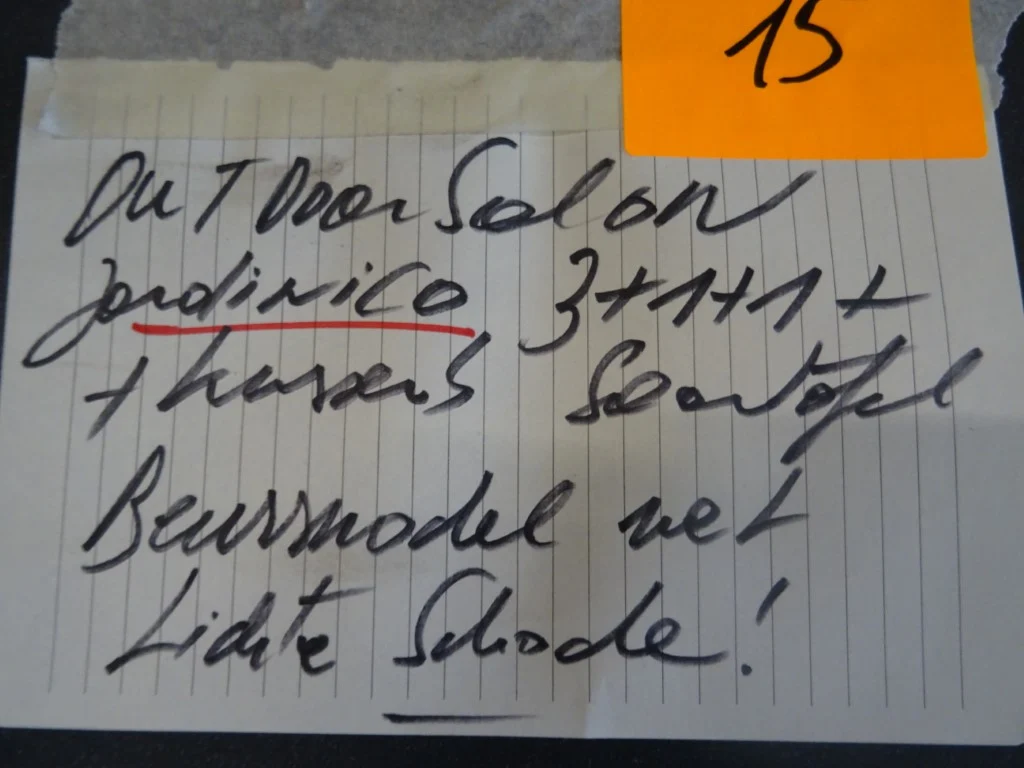 15
OUTDoor Salon
Jardinico 3+1+1+
+ kussens Salontafel
Beursmodel met
Lichte Schade!